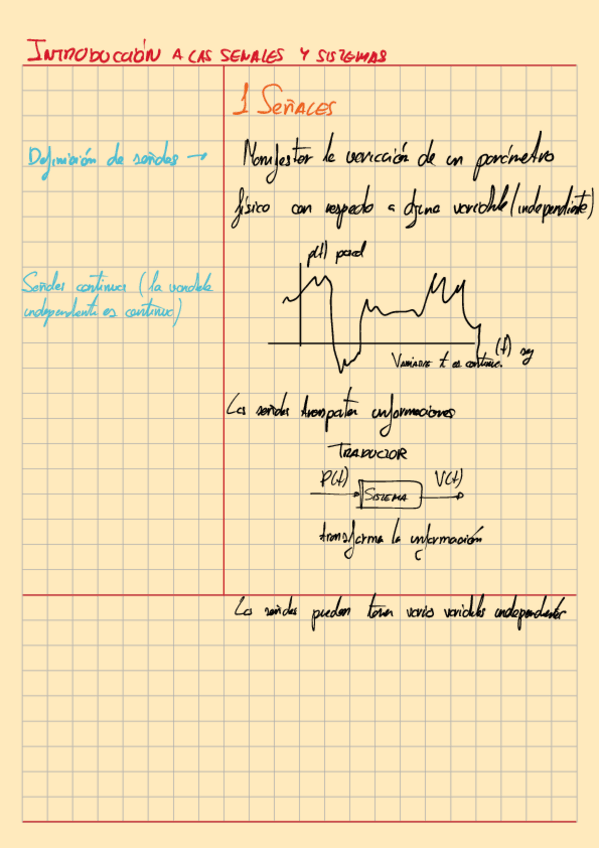 INTRODUCCIÓN A LAS SEÑALES Y SISTEMAS
1 SEÑALES
Definición de señales →
Manifestar la variación de un parámetro
físico con respecto a alguna variable (independiente)
Señales continuas (la variable
independiente es continua)
p(t) pascal
(t) seg
VARIABLE t es continua.
Las señales transportan informaciones
TRADUCTOR
P(t)
SISTEMA
V(t)
transforma la información
Las señales pueden tener varias variables independientes